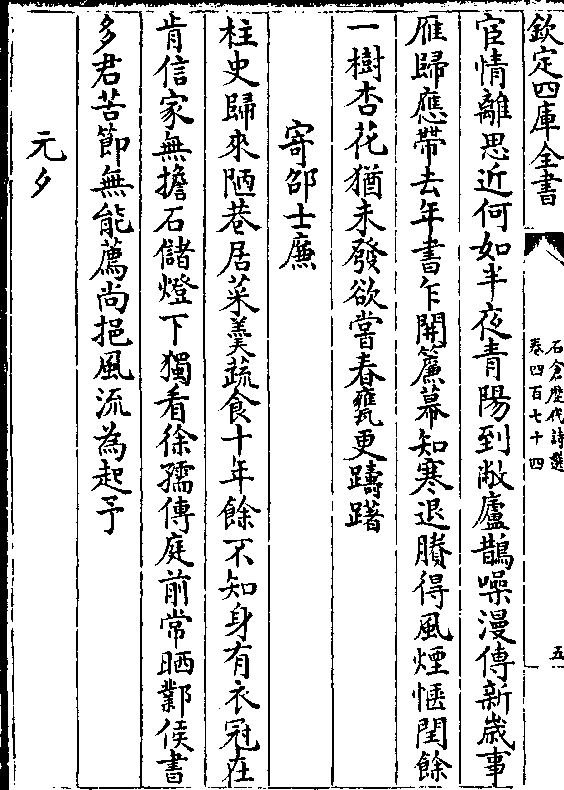 欽定四庫全書
石倉歴代詩選
卷四百七十四
五
宦情離思近何如半夜青陽到敝廬鵲噪漫傳新歲事
雁歸應帶去年書乍開簾幕知寒退賸得風煙惬閏餘
一樹杏花猶未發欲嘗春甕更躊躇
寄邵士廉
柱史歸來陋巷居菜羹蔬食十年餘不知身有衣冠在
肯信家無擔石儲燈下獨看徐孺傳庭前常晒鄴侯書
多君苦節無能薦尚挹風流為起予
元夕